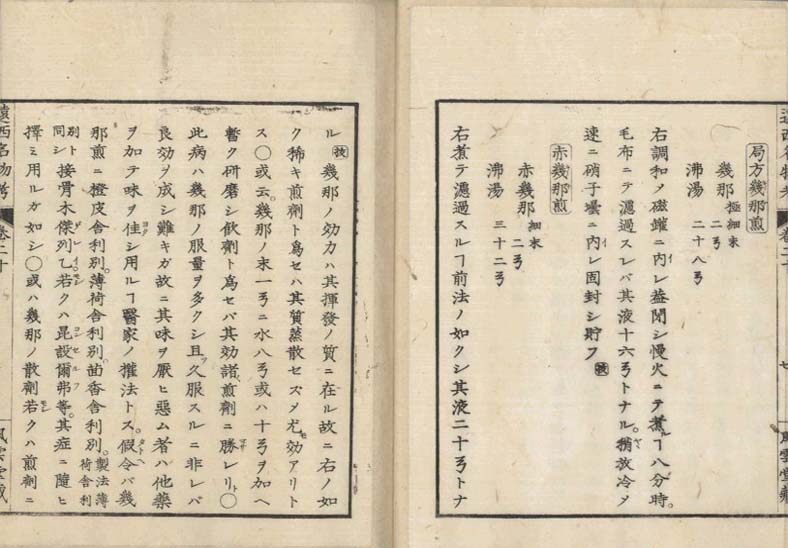 局方幾那煎
幾那 極細末 二ヲ
沸湯 二十八ヲ
右調和ノ磁罐ニ内レ葢閉シ慢火ニテ煮ルヿ八分時。
毛布ニテ濾過スレバ其液十六ヲトナル。稍放冷ノ
速ニ硝子壜ニ内レ固封シ貯フ
赤幾那煎
赤幾那 細末 二ヲ
沸湯 三十二ヲ
右煮テ濾過スルヿ前法ノ如クシ其液二十ヲトナ
遠西名物考 巻二十
七
風雲堂藏
ル 按 幾那ノ効力ハ其揮發ノ質ニ在ル故ニ右ノ如
ク稀キ煎劑ト爲セハ其質蒸散セズメ尤效アリト
ス〇或云。幾那ノ末一ヲニ水八ヲ或ハ十ヲヲ加ヘ
暫ク研磨シ飲劑ト爲セバ其効諸煎劑ニ勝レリト〇
此病ハ幾那ノ服量ヲ多クシ且ツ久服スルニ非レバ
良効ヲ成シ難キガ故ニ其味ヲ厭ヒ惡ム者ハ他藥
ヲ加テ味ヲ佳シ用ルヿ醫家ノ權法トス。假令バ幾
那煎ニ橙皮舎利別。薄荷舎利別。茴香舎利別。製法薄荷舎利
別ト同シ 接骨木傑列乙。若クハ昆設爾弗等。其症ニ隨ヒ
擇ミ用ルガ如シ〇或ハ幾那ノ散劑若クハ煎劑ニ
遠西名物考 巻二十
風雲堂藏